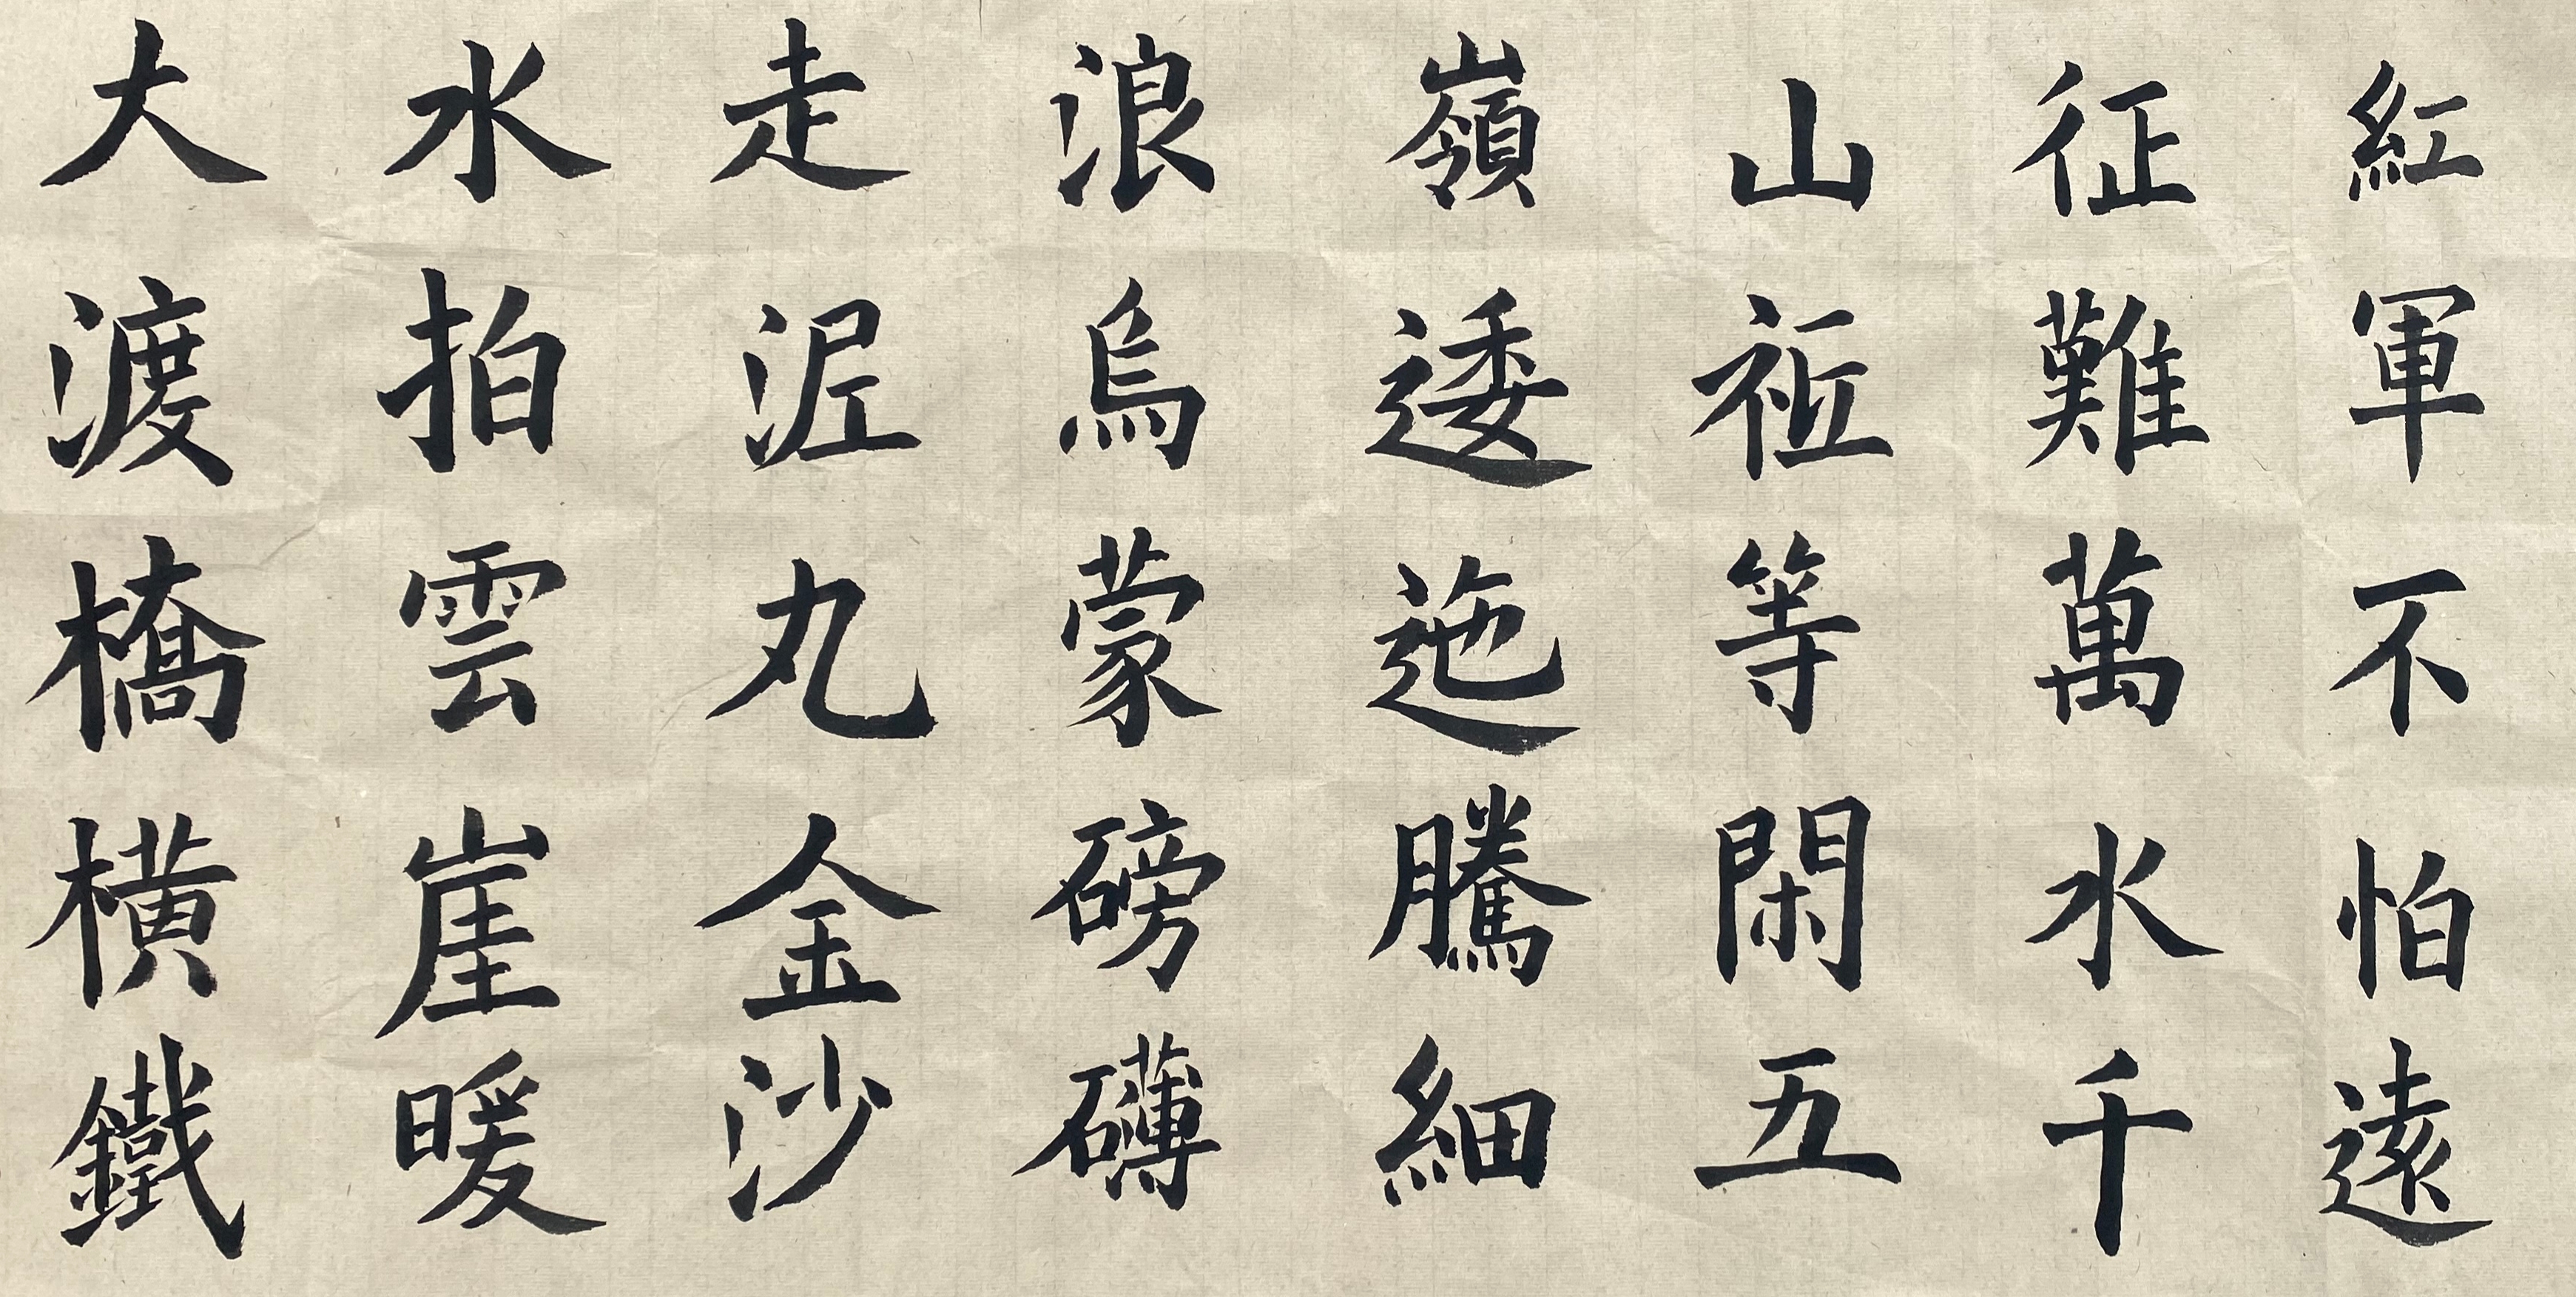 紅軍不怕遠
征難萬水千
山袛等閑五
嶺逶迤騰細
浪烏蒙磅礴
走泥丸金沙
水拍雲崖暖
大渡橋橫鐵